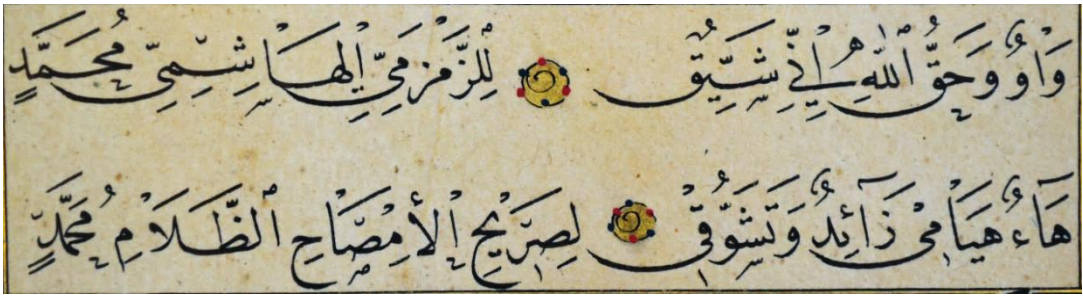 وَاوٌ وَحَقُّ ٱللّٰهِ إِنِّي شَيِّقٌ لِلزَّمْزَمِيِّ الْهَاشِمِيِّ مُحَمَّدٍ
هَاءٌ هُيَامِي زَآئِدٌ وَتَشَوُّقِي لِصَرِيْحِ الْأمِصَّاحِ ٱلظَّلَامِ مُحَمَّدٍ